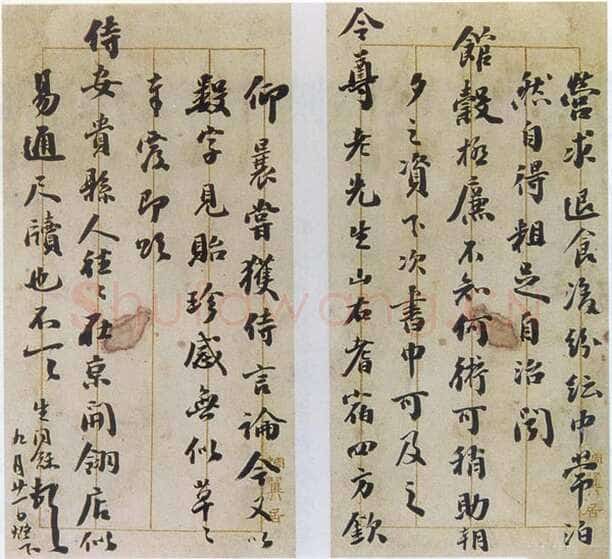 營求退食後紛紜中常泊
然自得粗足自治閱
館穀極廉不知何術可稍助朝
夕之資下次書中可及之
令尊老先生山右耆宿四方欽
仰曩嘗獲侍言論今又以
數字見貽珍感無似草々
幸覆即頌
侍安貴縣人往々在京開錫店似
易通尺牘也不一々
九月廿一日燈下